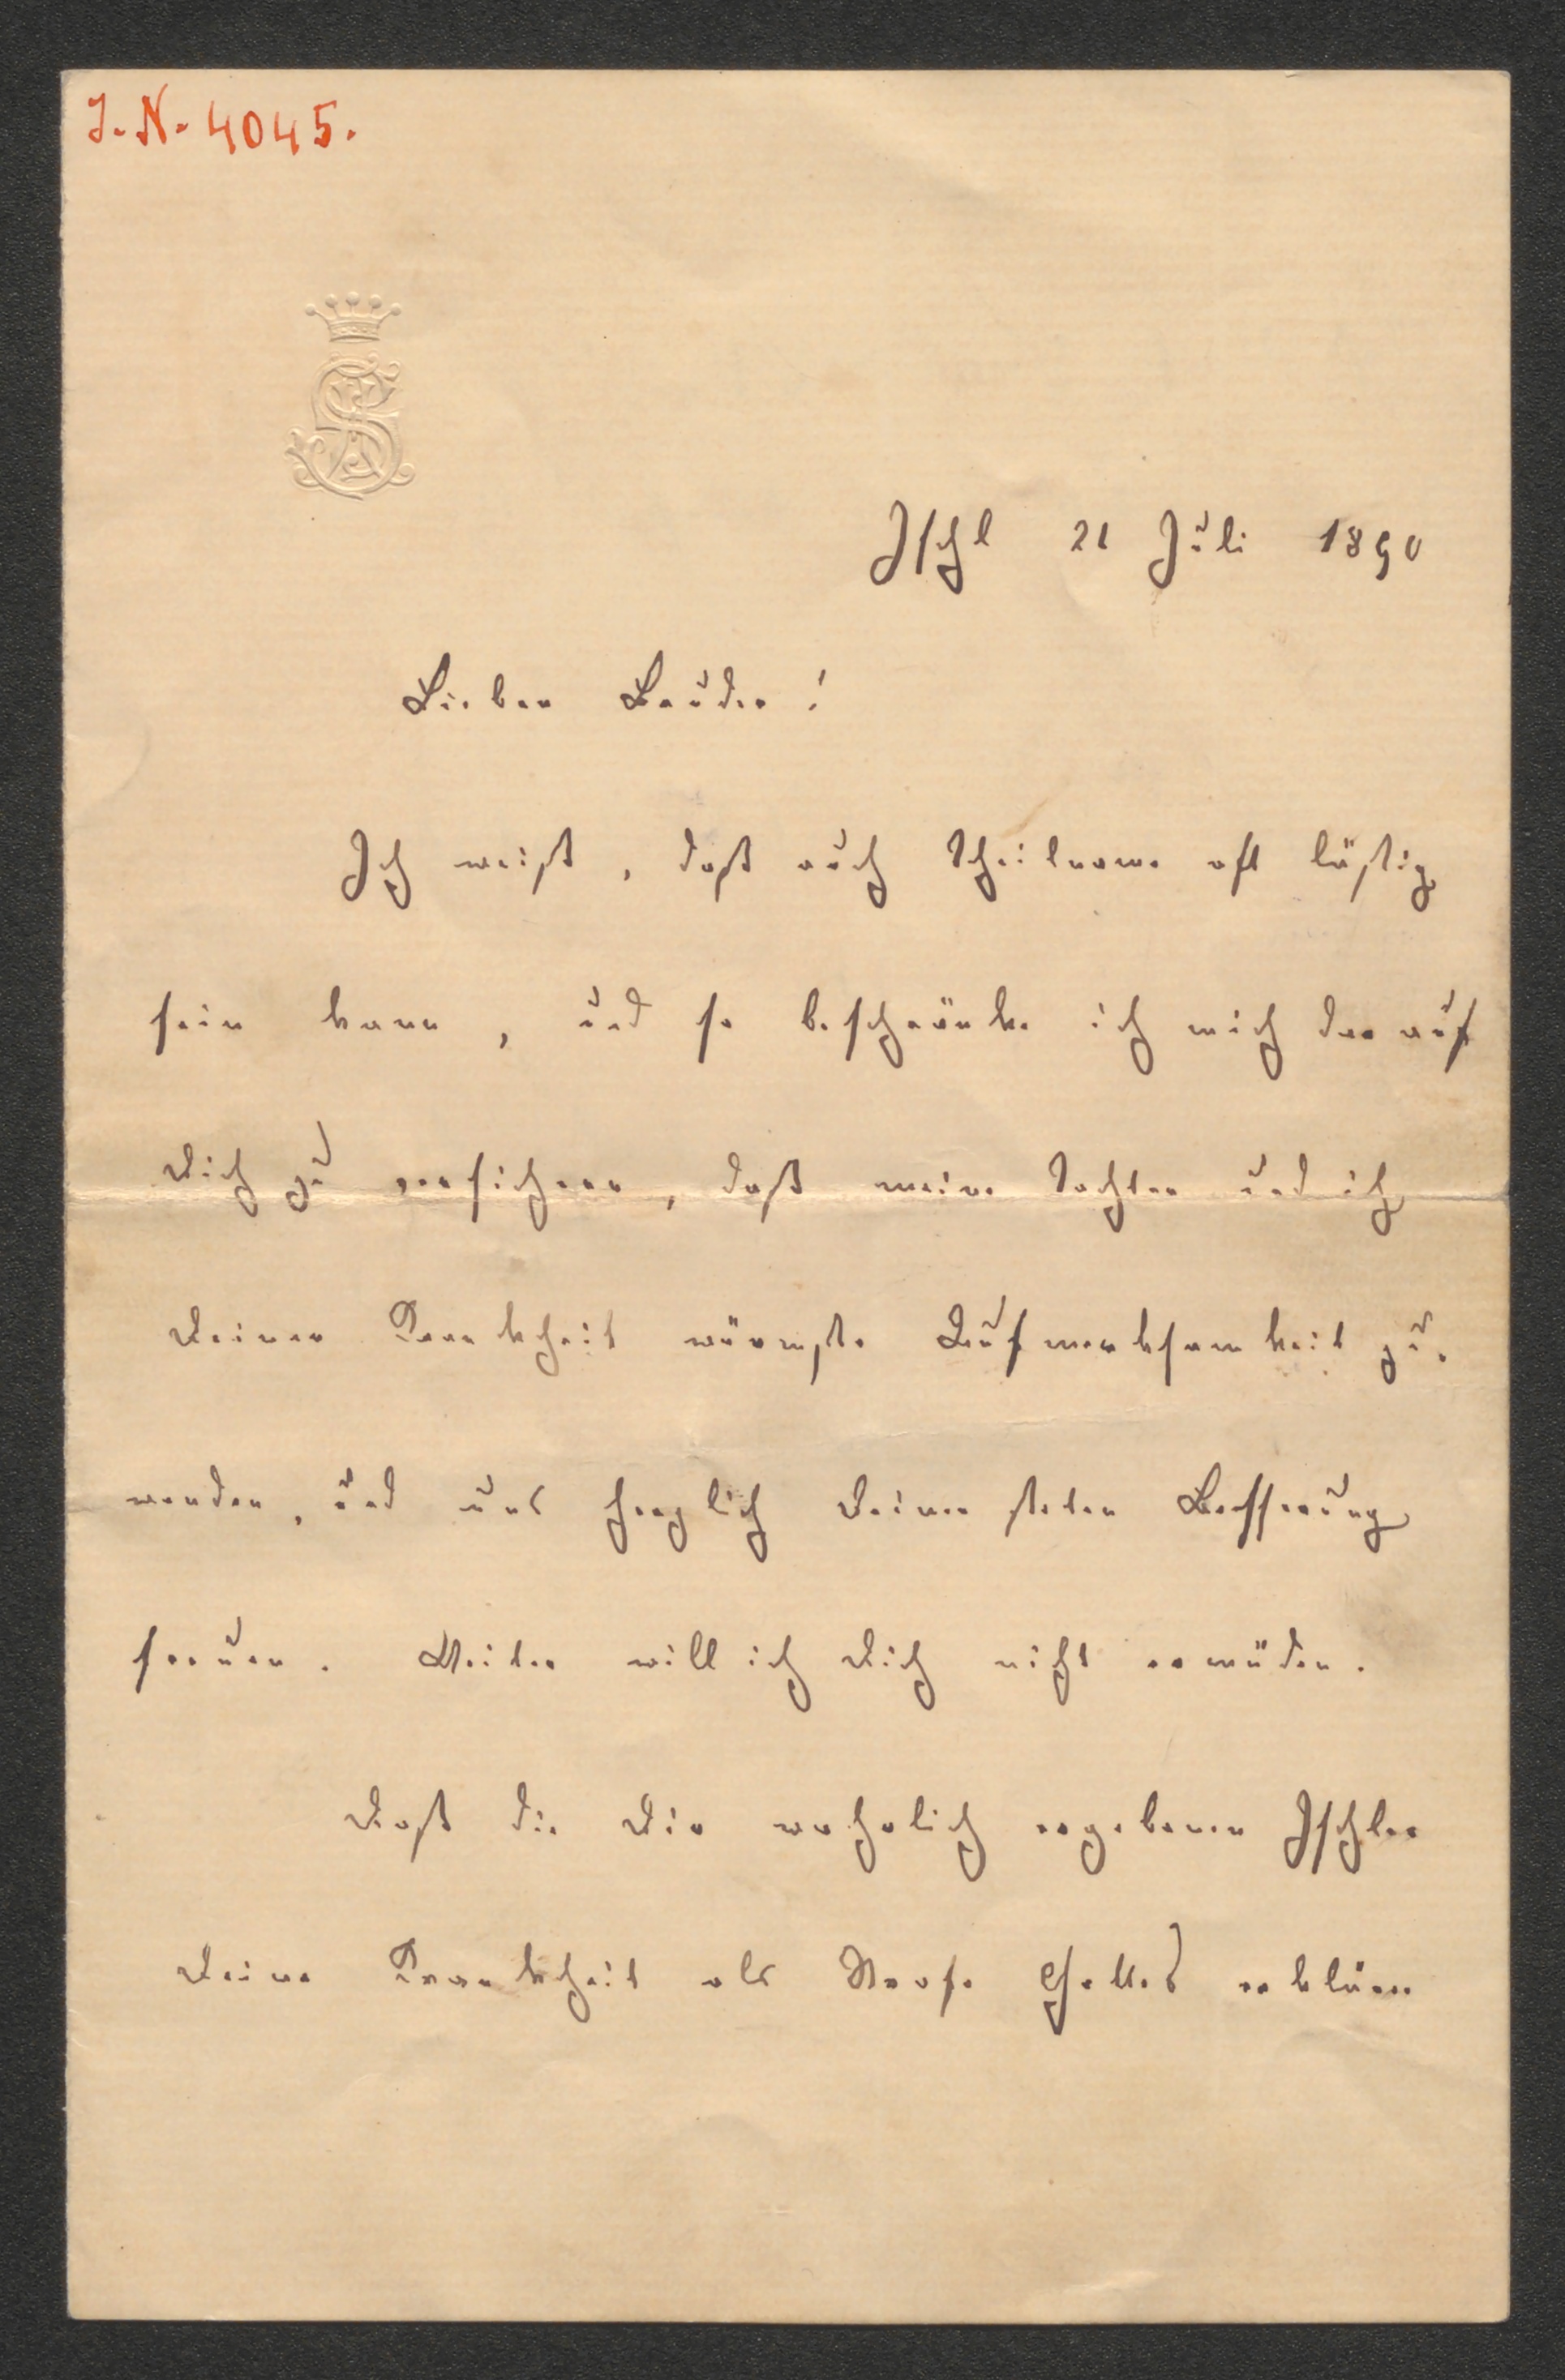 J. N. 4045.
Ischl 21 Juli 1890
Lieber Bruder!
Ich weiß, daß auch Theilname oft lästig
sein kann, und so beschränke ich mich darauf
Dich zu versichern, daß meine Tochter und ich
Deiner Krankheit wärmste Aufmerksamkeit zu-
wenden, und uns herzlich Deiner steten Besserung
freuen. Weiter will ich Dich nicht ermüden.
Daß die Dir wahrlich ergebenen Ischler
Deine Krankheit als Strafe Gottes erkläre